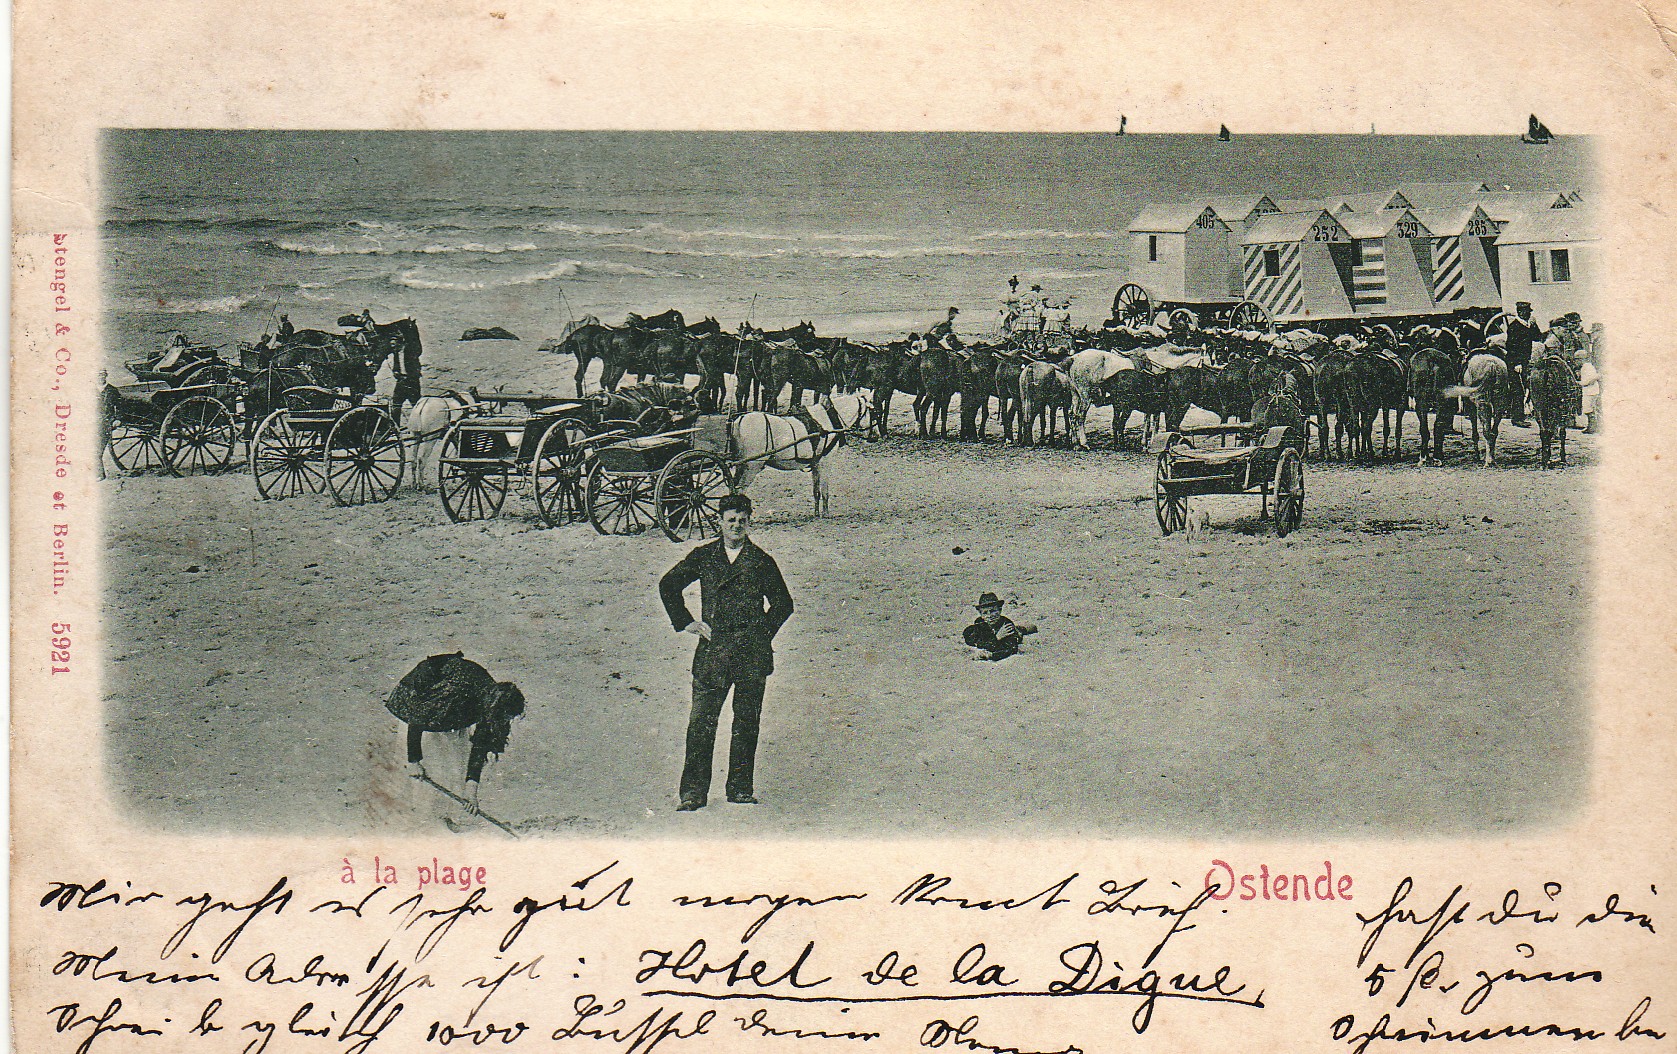 405
252
329
285
Stengel & Co., Dresde et Berlin. 5921
à la plage
Ostende
Mir geht es sehr gut morgen kommt Brief.
Meine Adresse ist: Hotel de la Digue,
Schreibe gleich 1000 Bussel deine
hast du die
5 zum